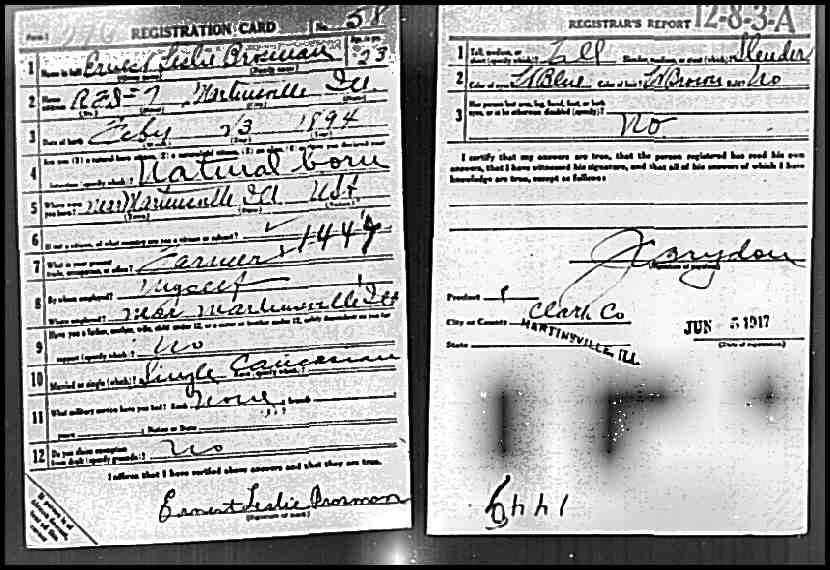 REGISTRATION CARD No. 58
Age, in yrs.
1 Name in full Ernest Leslie Brosman 23
(Given name) (Family name)
2 Home address R.F.D=7 Martinsville Ill.
(No.) (City) (State)
3 Date of birth Feby 23 1894
(Month) (Day) (Year)
4 Are you (1) a natural born citizen, (2) a naturalized citizen, (3) an alien, (4) or have you declared your
intention (specify which)? Natural born
5 Where were you born? near Martinsville Ill USA
(Town) (State) (Nation)
6 If not a citizen, of what country are you a citizen or subject?
7 What is your present trade, occupation, or office? Farmer 1447
8 By whom employed? Myself
Where employed? near Martinsville Ill
9 Have you a father, mother, wife, child under 12, or a sister or brother under 12, solely dependent on you for
support (specify which)? No
10 Married or single (which)? Single Race (specify which)? Caucasian
11 What military service have you had? Rank None; branch
years; Nation or State
12 Do you claim exemption from draft (specify grounds)? No
I affirm that I have verified above answers and that they are true.
Ernest Leslie Brosman
(Signature or mark)
REGISTRAR'S REPORT 12-8-3-A
1 Tall, medium, or short (specify which)? Tall Slender, medium, or stout (which)? Slender
2 Color of eyes? Lt Blue Color of hair? Lt Brown Bald? No
3 Has person lost arm, leg, hand, foot, or both
eyes, or is he otherwise disabled (specify)?
No
I certify that my answers are true, that the person registered has read his own
answers, that I have witnessed his signature, and that all of his answers of which I have
knowledge are true, except as follows:
J Brydon
(Signature of registrar)
Precinct 1
City or County Clark Co
JUN 5 1917
State MARTINSVILLE, ILL.
(Date of registration)